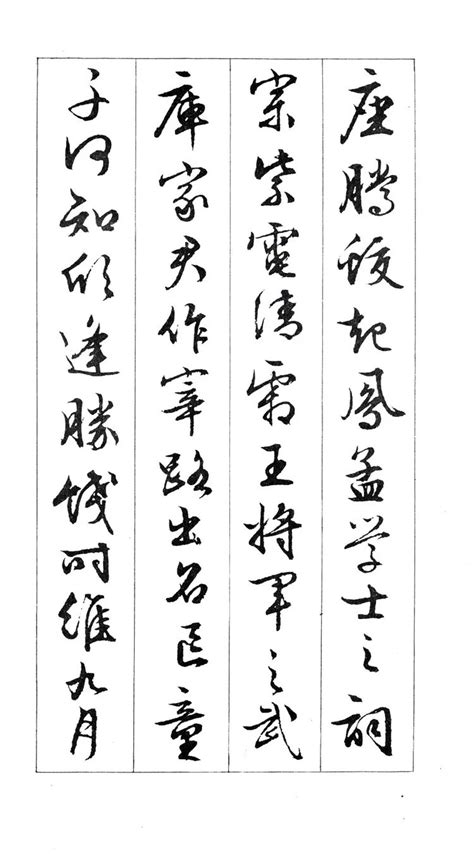 座腾蛟起凤孟学士之词
宗紫電清霜王将军之武
庫家君作宰路出名区童
子何知欣逢勝饯时维九月